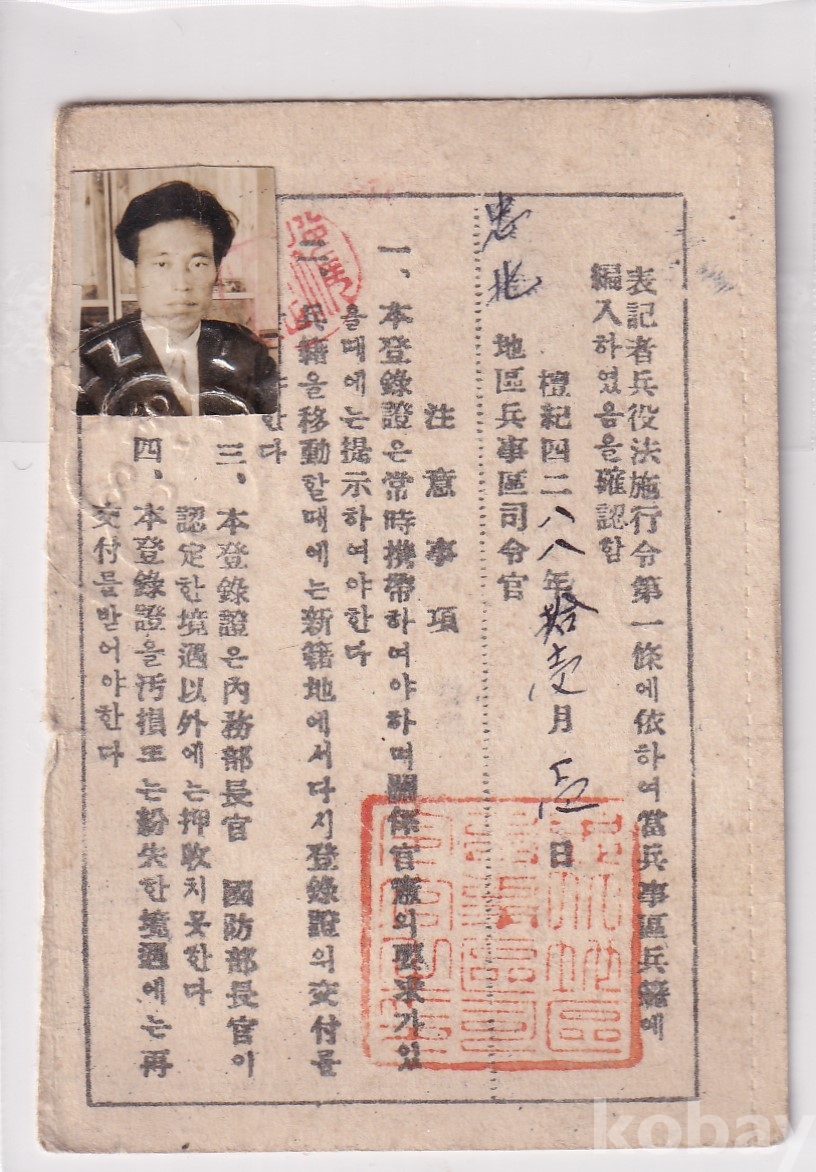 表記者兵役法施行令第一條에依하여當兵事區兵籍에
編入하였음을確認함
檀紀四二八八年拾壱月五日
忠北地區兵事區司令官
注意事項
一、本登錄證은常時携帶하여야하며關係官憲의要求가있
을때에는提示하여야한다
二、兵籍을移動할때에는新籍地에서다시登錄證의交付를
야한다
三、本登錄證은內務部長官 國防部長官이
認定한境遇以外에는押收치못한다
四、本登錄證을汚損또는紛失한境遇에는再
交付를받어야한다
kobay